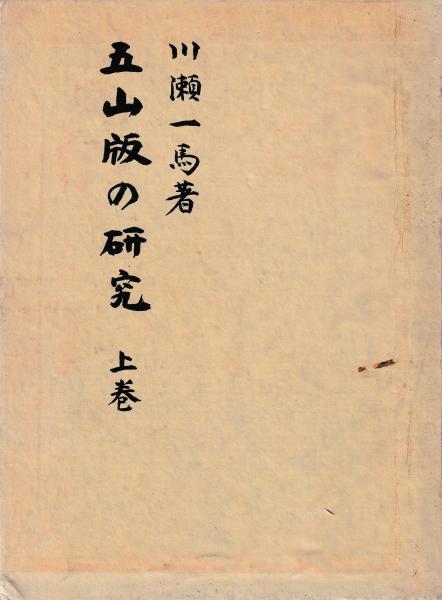 川瀬一馬著
五山版の研究 上巻